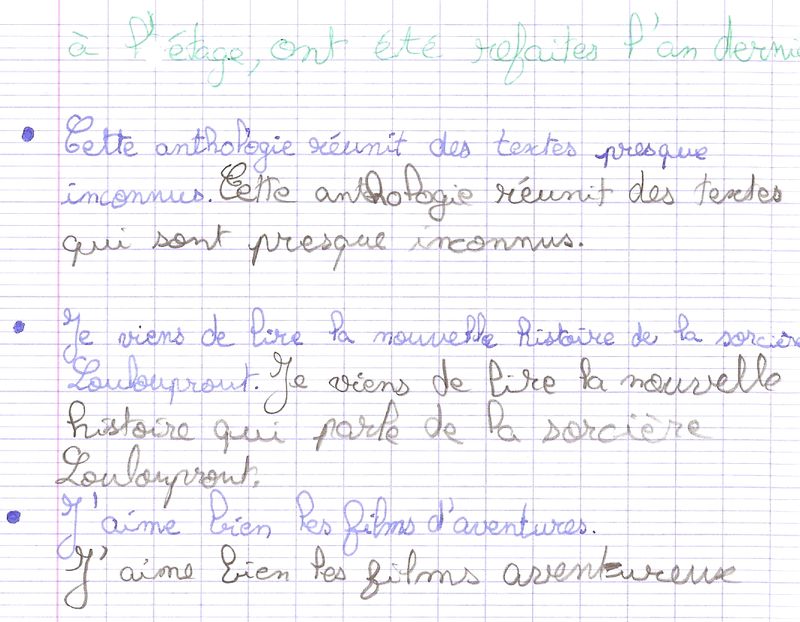 à l'étage, ont été refaites l'an dernie
Cette anthologie réunit des textes presque
inconnus. Cette anthologie réunit des textes
qui sont presque inconnus.
Je viens de lire la nouvelle histoire de la sorcière
Loulouprout. Je viens de lire la nouvelle
histoire qui parle de la sorcière
Loulouprout.
J'aime bien les films d'aventures.
J'aime bien les films aventureux